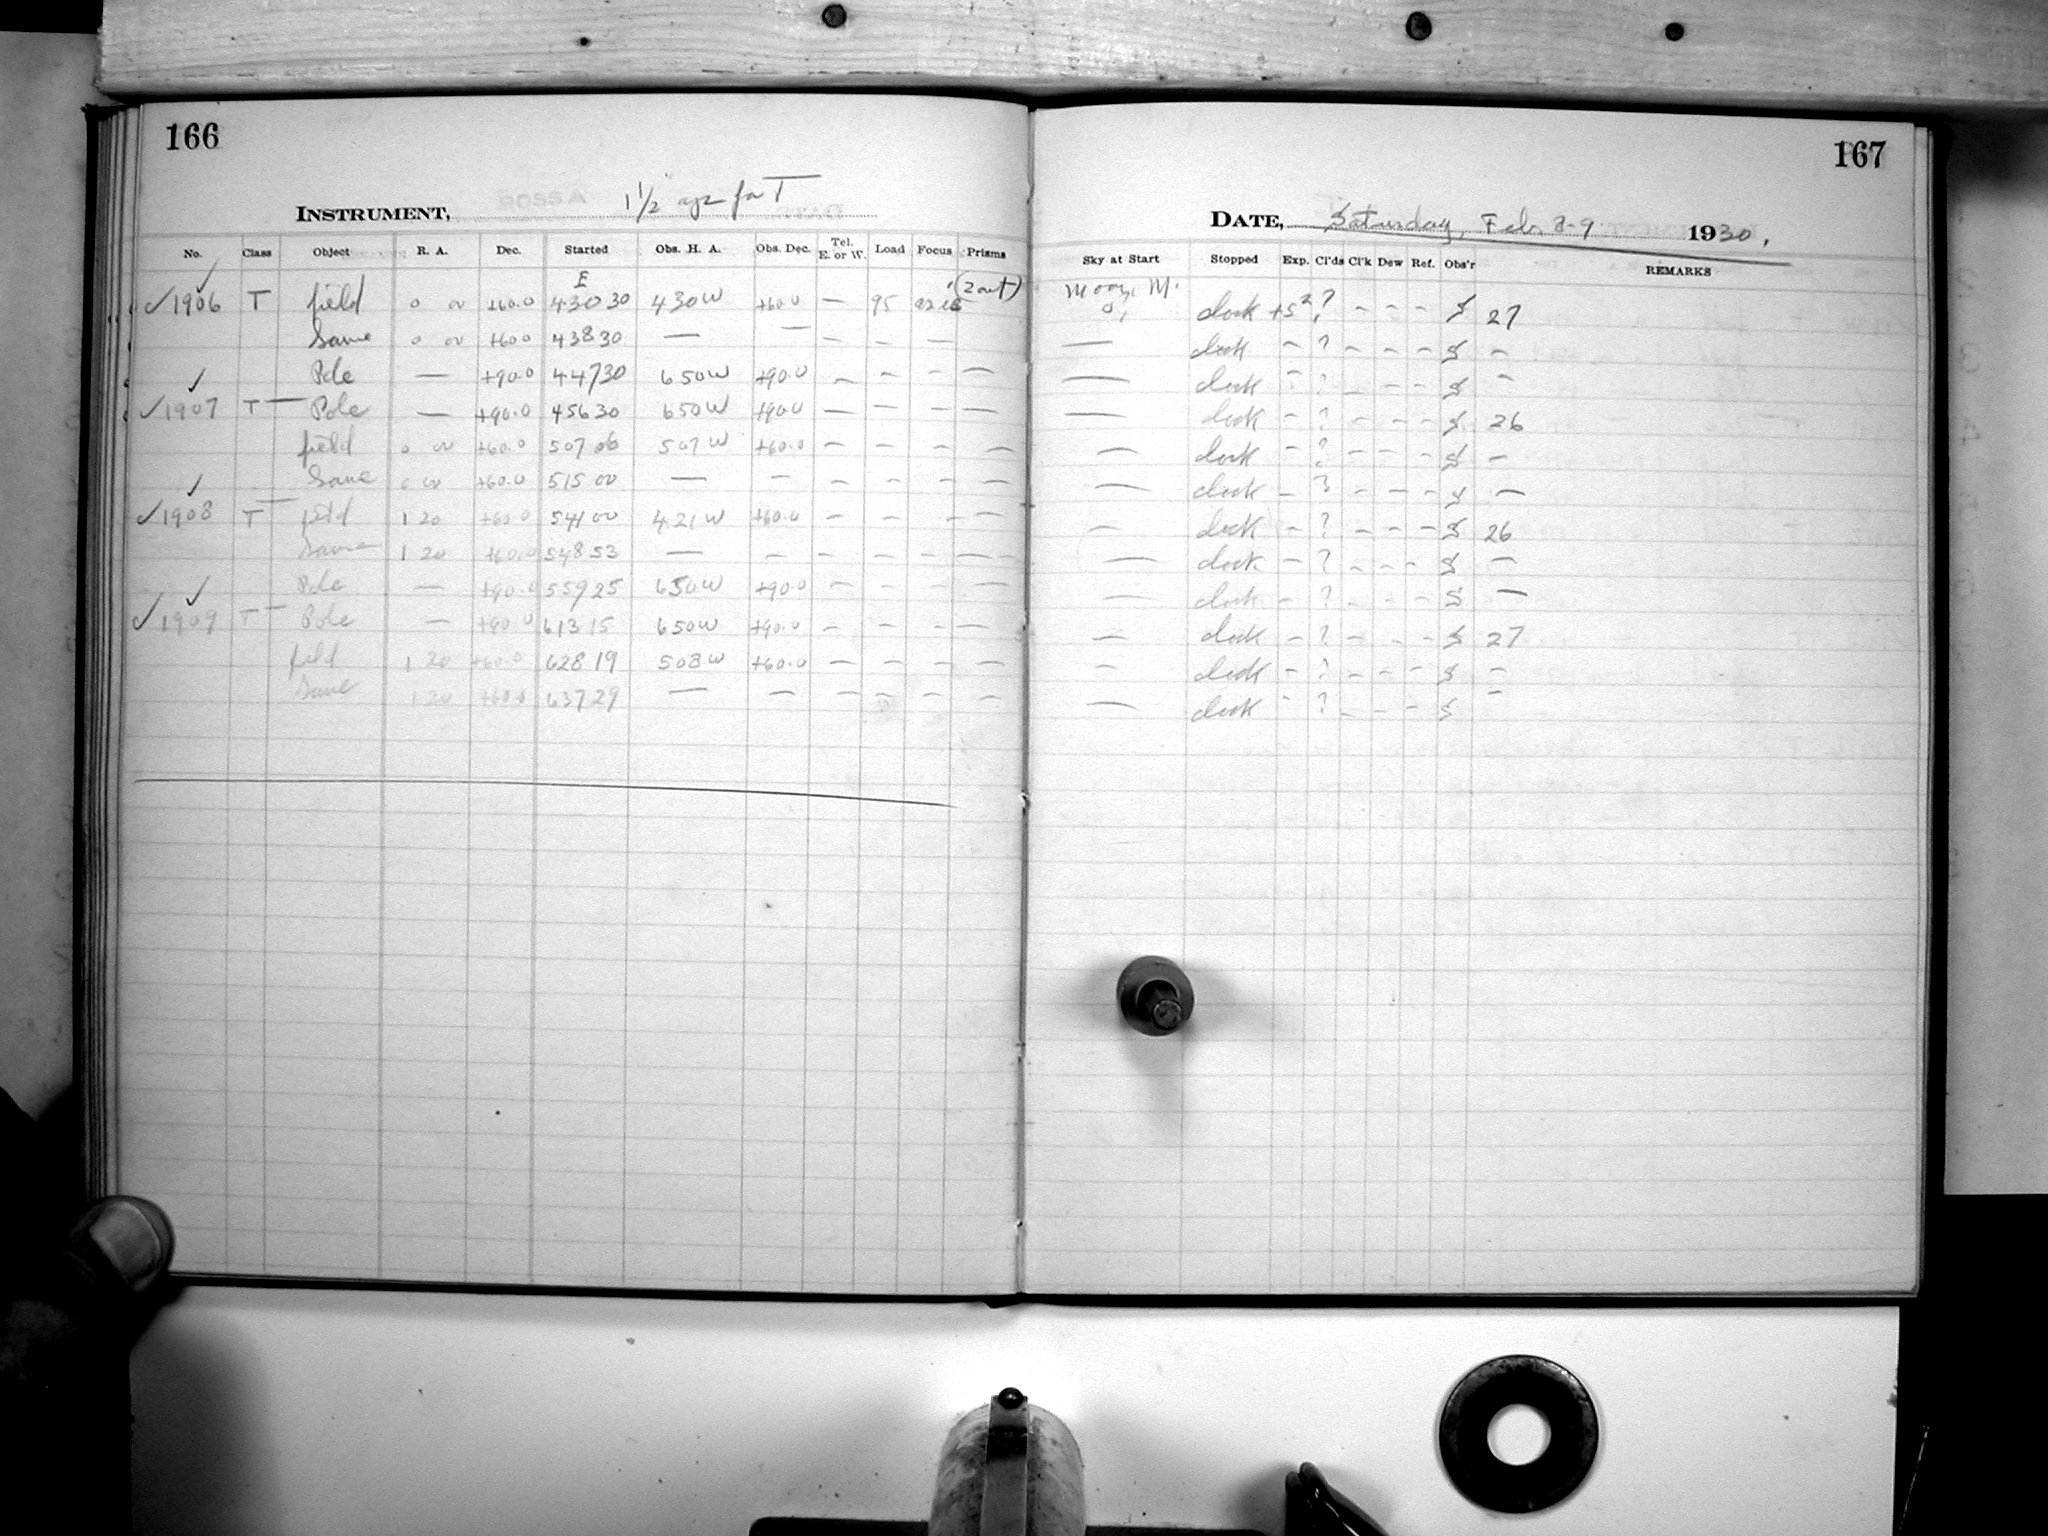 166
INSTRUMENT, 1 1/2 for T
No. Class Object R. A. Dec. Started Obs. H. A. Obs. Dec. Tel. E. or W. Load Focus Prisms
E (2 out)
✓1906 T field 0 00 +60.0 43030 430W +60.0 — 95
Same 0 00 +60.0 43830 — — — — —
Pole — +90.0 44730 650W +90.0 — — — —
✓1907 T Pole — +90.0 45630 650W +90.0 — — — —
field 0 00 +60.0 50706 507W +60.0 — — — —
Same 0 00 +60.0 51500 — — — — — —
✓1908 T field 1 20 +60.0 54100 421W +60.0 — — — —
Same 1 20 +60.0 54853 — — — — — —
Pole — +90.0 55925 650W +90.0 — — — —
✓1909 T Pole — +90.0 61315 650W +90.0 — — — —
field 1 20 +60.0 62819 508W +60.0 — — — —
Same 1 20 +60.0 63729 — — — — — —
167
DATE, Saturday, Feb. 8-9 1930,
Sky at Start Stopped Exp. Cl'ds Cl'k Dew Ref. Obs'r REMARKS
Moon, M.
clock ? — — — S 27
— clock — ? — — — S —
— clock — ? — — — S —
— clock — ? — — — S 26
— clock — ? — — — S —
— clock — ? — — — S —
— clock — ? — — — S 26
— clock — ? — — — S —
— clock — ? — — — S —
— clock — ? — — — S 27
— clock — ? — — — S —
— clock — ? — — — S